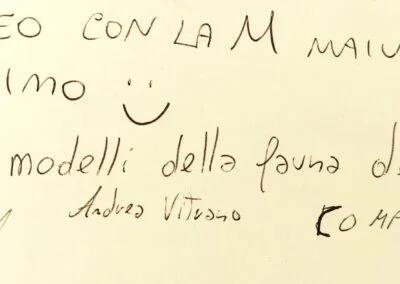 EO CON LA M MAIU
IMO
modelli della fauna de
Andrea Vitrano
COMP